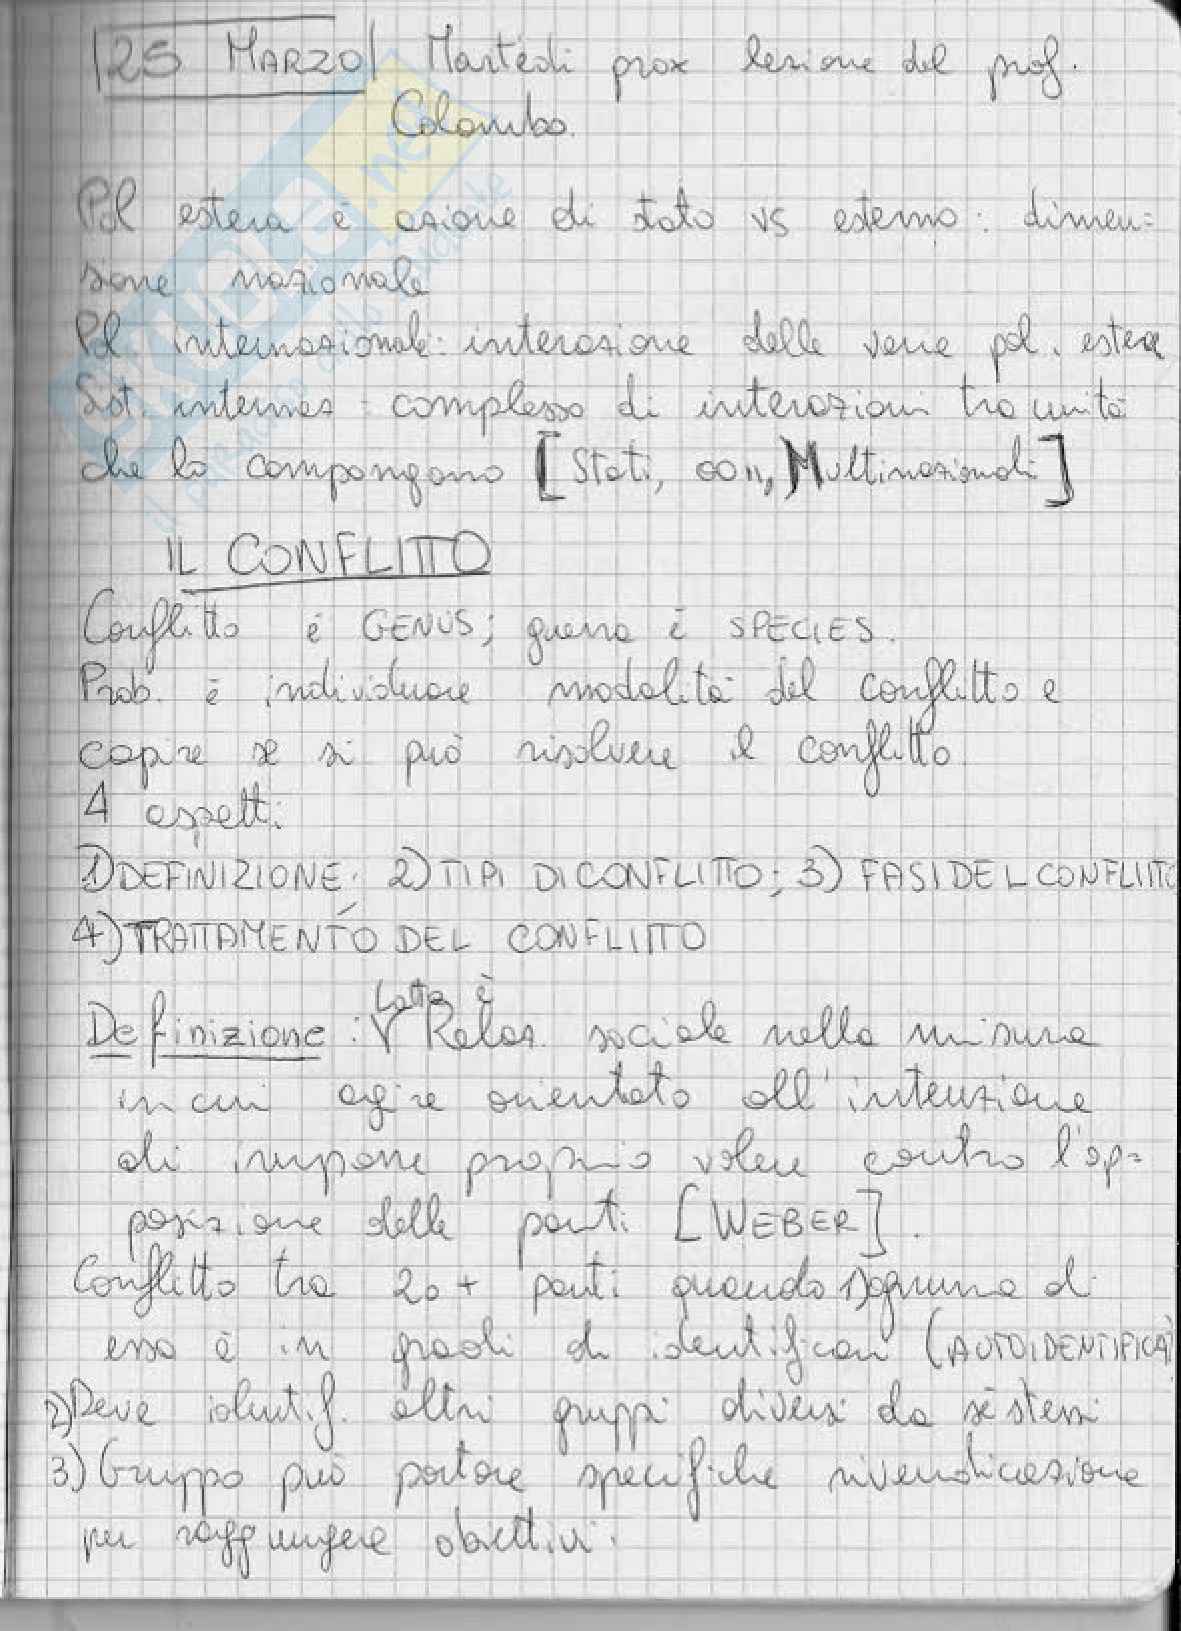 25 MARZO Martedì prox lezione del prof.
Colombo.
Pol estera è azione di stato vs esterno: dimen=
sione nazionale
Pol. internazionale: interazione delle varie pol. estera
Sist. internaz: complesso di interazioni tra unità
che lo compongono [Stati, Multinazionali]
IL CONFLITTO
Conflitto è GENUS; guerra è SPECIES.
Prob. è individuare modalità del conflitto e
capire se si può risolvere il conflitto
4 aspetti:
1) DEFINIZIONE; 2) TIPI DI CONFLITTO; 3) FASI DEL CONFLITTO
4) TRATTAMENTO DEL CONFLITTO
Lotta è
Definizione: Relaz. sociale nella misura
in cui agire orientato all'intenzione
di imporre proprio volere contro l'op=
posizione delle parti [WEBER].
Conflitto tra 2 o + parti quando 1) ognuna di
esse è in grado di identificarsi (AUTOIDENTIFICAZ)
2) Deve identif. altri gruppi diversi da sè stessi
3) Gruppo può portare specifiche rivendicazione
per raggiungere obiettivi.
skuola.net
il paradiso dello studente